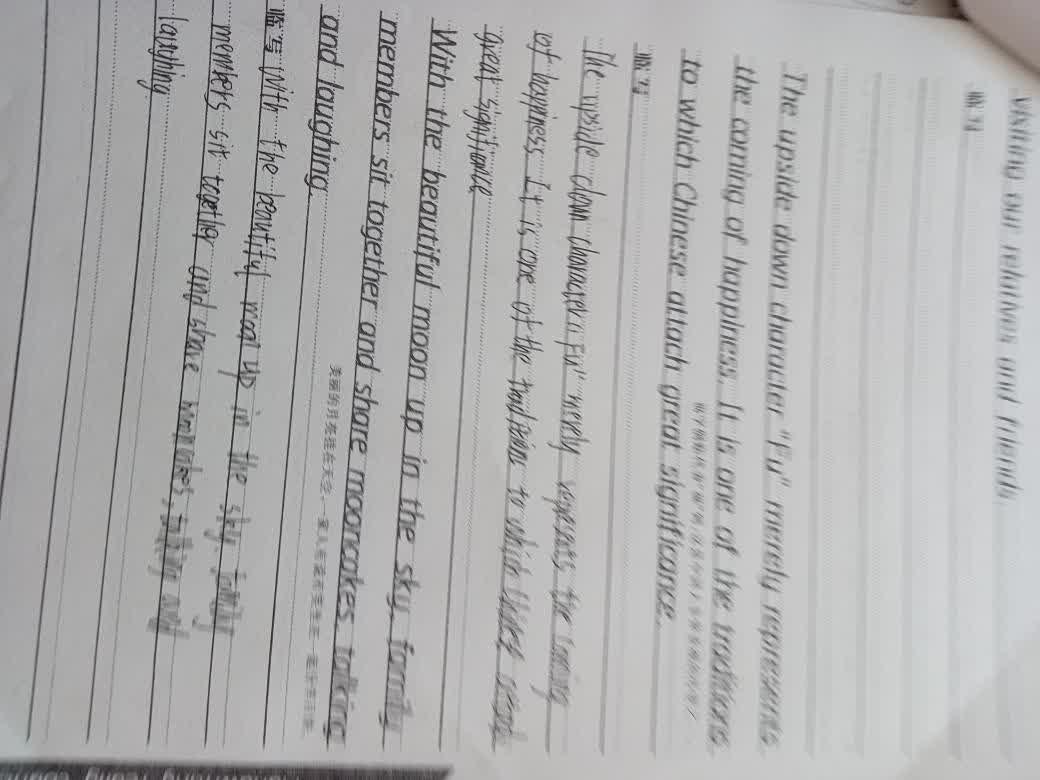 visiting our relatives and friends.
临写
The upside down character "Fu" merely represents
the coming of happiness. It is one of the traditions
to which Chinese attach great significance.
临写
The upside down character "Fu" merely represents the coming
of happiness. It is one of the traditions to which
great significance
With the beautiful moon up in the sky, family
members sit together and share mooncakes talking
and laughing.
美丽的月亮挂在天空,一家人
临写 With the beautiful moon up in the sky, family
members sit together and share mooncakes, talking and
laughing